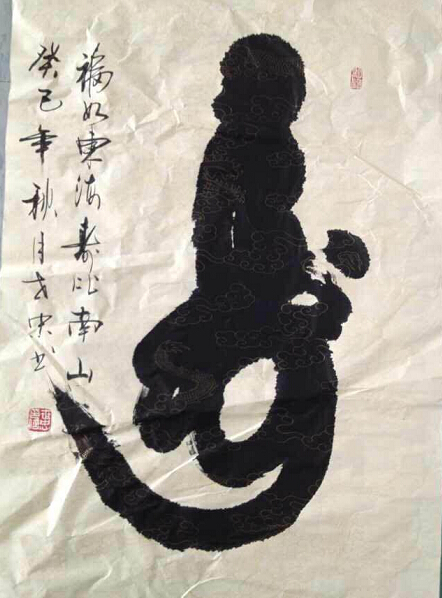 寿
福如東海寿比南山
癸巳年秋月
书